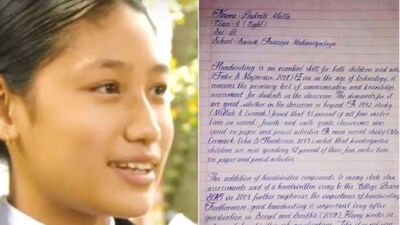 Name: Prakriti Malla
Class: 8 (Eight)
Sec: 'B'
School: Sainik Awasiya Mahavidyalaya
Handwriting is an essential skill for both children and adults
(Feder & Majnemer, 2007). Even in the age of technology, it
remains the primary tool of communication and knowledge
assessment for students in the classroom. The demands for it
are great, whether in the classroom or beyond. A 1992 study
(McHale & Cermak) found that 85 percent of all fine motor
time in second- fourth- and sixth-grade classrooms was
spent on paper and pencil activities. A more recent study
Cermak, & Henderson, 2003) noted that kindergarten
children are now spending 42 percent of their fine motor time
on paper and pencil activities.
The addition of handwritten components to many state
assessments and of a handwritten essay to the College Board
SAT in 2005 further emphasize the importance of handwriting.
Furthermore, good handwriting is important long after
graduation